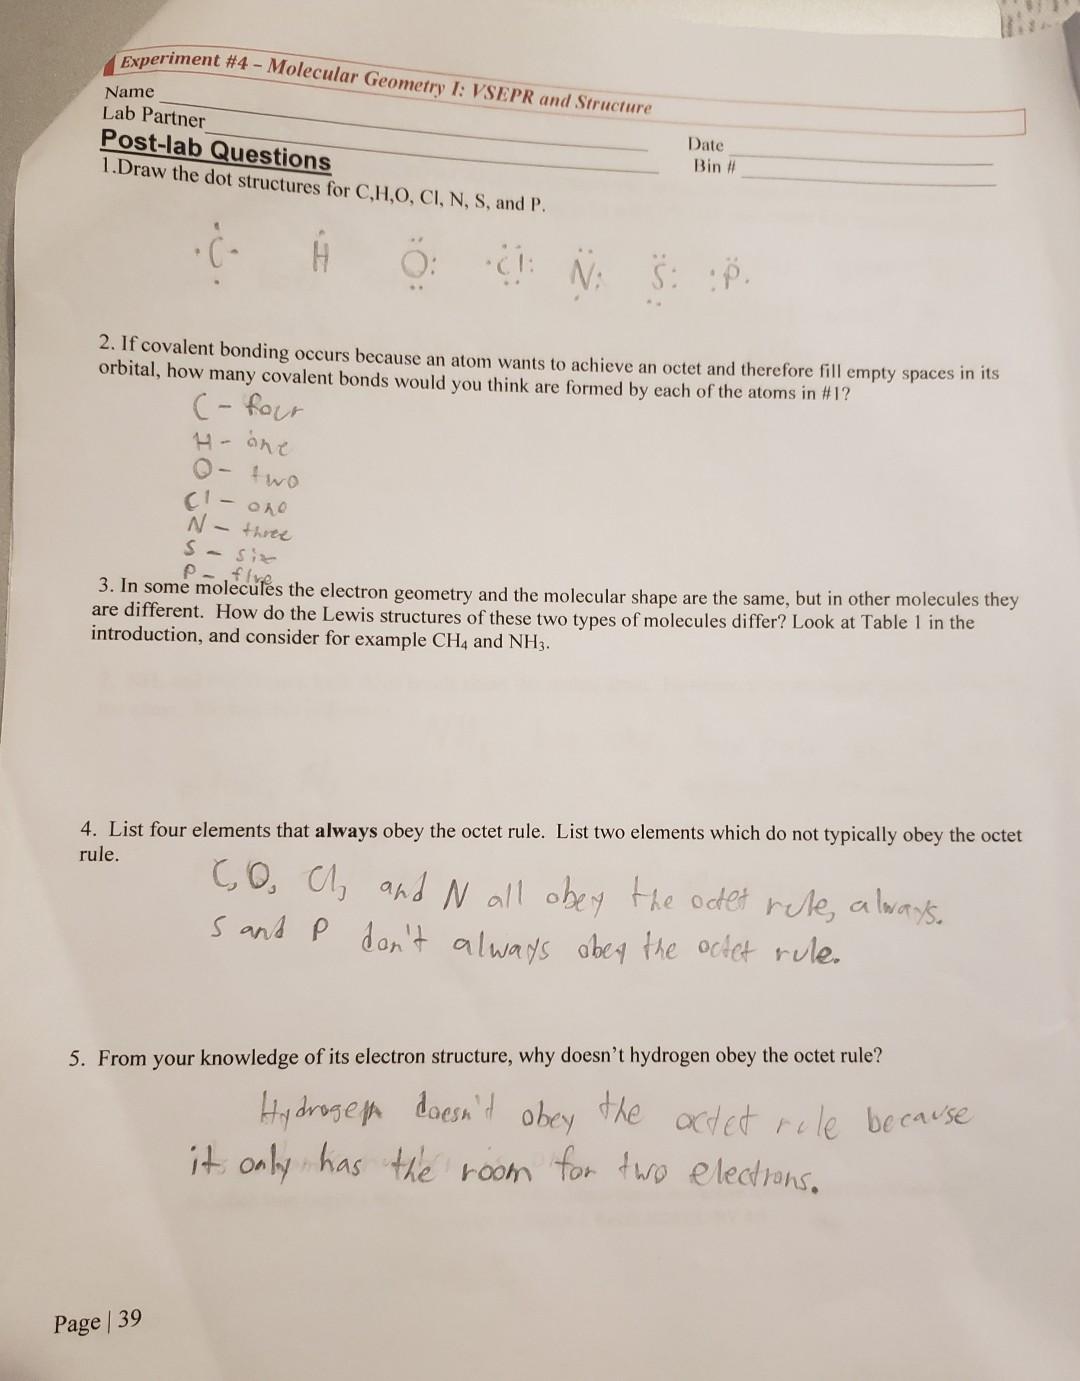 Experiment #4 – Molecular Geometry I: VSEPR and Structure
Name
Lab Partner
Date
Bin #
Post-lab Questions
1.Draw the dot structures for C,H,O, Cl, N, S, and P.
C H O Cl N S P
2. If covalent bonding occurs because an atom wants to achieve an octet and therefore fill empty spaces in its
orbital, how many covalent bonds would you think are formed by each of the atoms in #1?
C - four
H - one
O - two
Cl - one
N - three
S - six
P - five
3. In some molecules the electron geometry and the molecular shape are the same, but in other molecules they
are different. How do the Lewis structures of these two types of molecules differ? Look at Table 1 in the
introduction, and consider for example CH₄ and NH₃.
4. List four elements that always obey the octet rule. List two elements which do not typically obey the octet
rule.
C, O, Cl, and N all obey the octet rule, always.
S and P don't always obey the octet rule.
5. From your knowledge of its electron structure, why doesn't hydrogen obey the octet rule?
Hydrogen doesn't obey the octet rule because
it only has the room for two electrons.
Page | 39